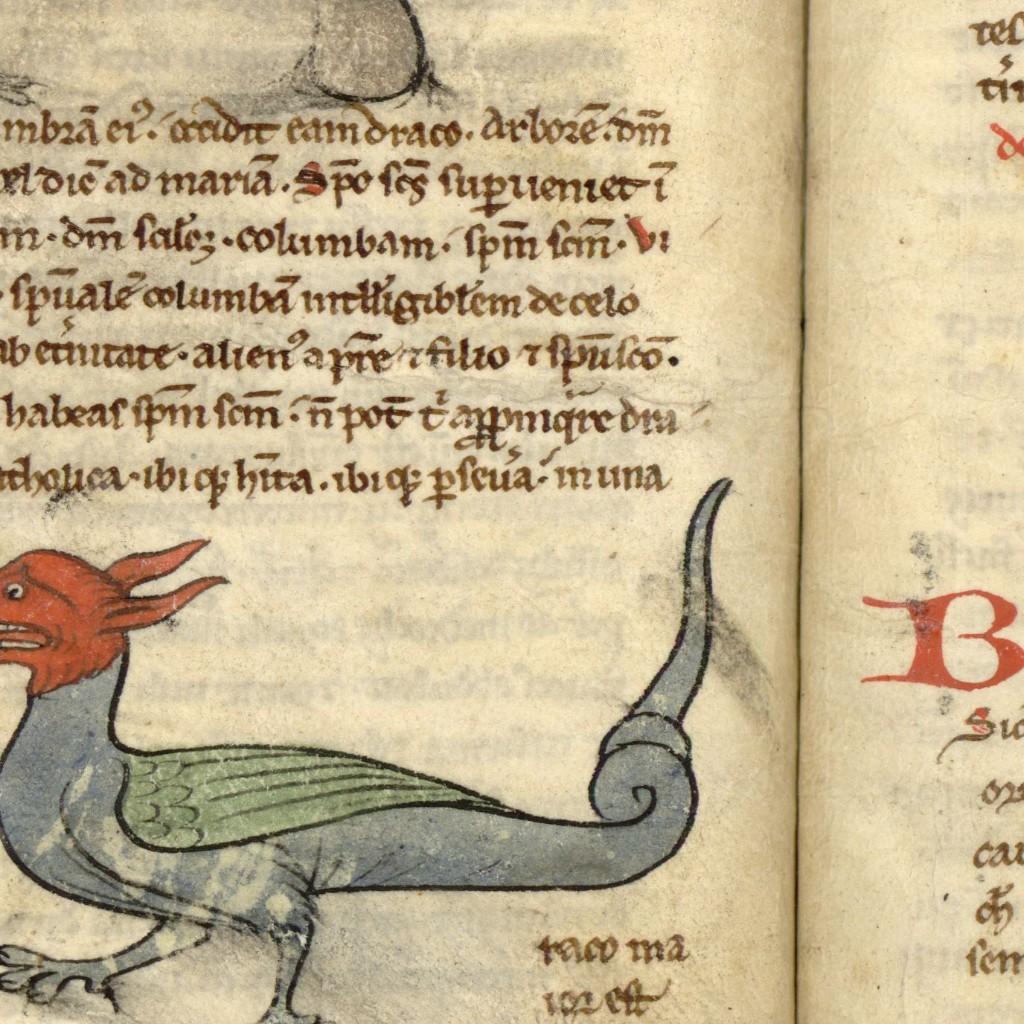 mbrā ei⁹· occidit eam draco. Arborē· dm̄
el dic̄ ad mariā. Sp̄o sc̄s suꝑueniet ī
m· dm̄ scilꝫ· columbam· sp̄m sc̄m· Vi
sp̄uale columbā intelligiblem de celo
ab et͛nitate· alien⁹ a pr̄e ⁊ filio ⁊ sp̄u sc̄o·
habeas sp̄m sc̄m· n̄ pot̄ t͛ dra
tholica· ibi qꝫ hīta. ibi qꝫ ꝑseu͛a· in una
raco ma
ior est
tes
de
B
Sic
ore
car
sem